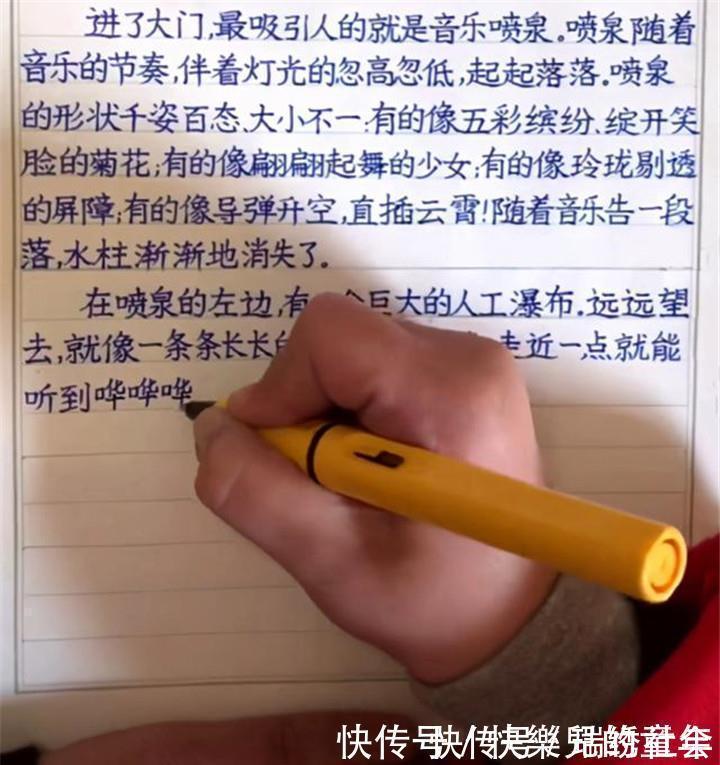 进了大门,最吸引人的就是音乐喷泉。喷泉随着
音乐的节奏,伴着灯光的忽高忽低,起起落落.喷泉
的形状千姿百态、大小不一:有的像五彩缤纷、绽开笑
脸的菊花;有的像翩翩起舞的少女;有的像玲珑剔透
的屏障;有的像导弹升空,直插云霄!随着音乐告一段
落,水柱渐渐地消失了.
在喷泉的左边,有 个巨大的人工瀑布.远远望
去,就像一条条长长的 走近一点就能
听到哗哗哗
快传号